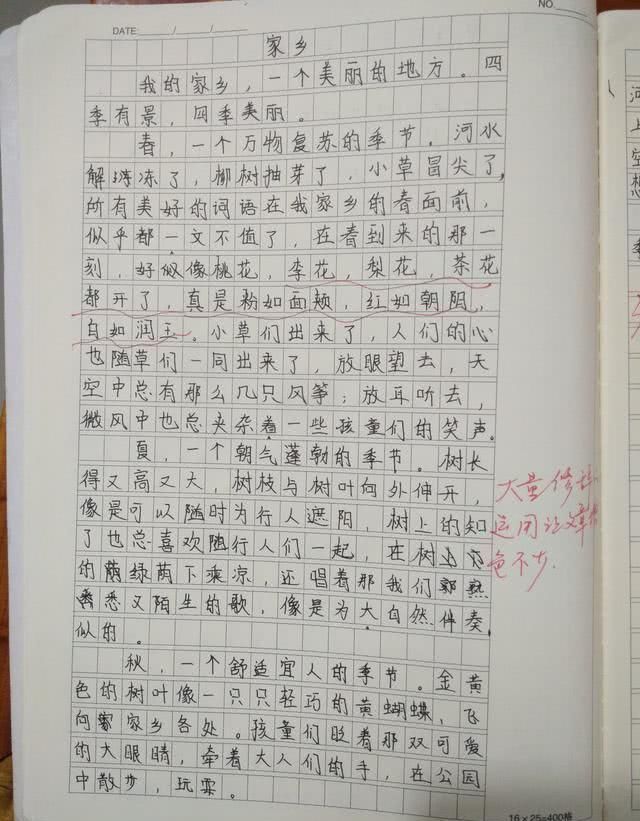 DATE
NO.
家乡
我的家乡，一个美丽的地方。四
季有景，四季美丽。
春，一个万物复苏的季节。河水
解冻了，柳树抽芽了，小草冒尖了，
所有美好的词语在我家乡的春面前，
似乎都一文不值了，在春到来的那一
刻，好似像桃花，李花，梨花，茶花
都开了，真是粉如面颊，红如朝阳，
白如润玉。小草们出来了，人们的心
也随草们一同出来了，放眼望去，天
空中总有那么几只风筝；放耳听去，
微风中也总夹杂着一些孩童们的笑声。
夏，一个朝气蓬勃的季节。树长
得又高又大，树枝与树叶向外伸开，
像是可以随时为行人遮阳，树上的知
了也总喜欢随行人们一起，在树
的绿荫下乘凉，还唱着那我们熟
悉又陌生的歌，像是为大自然伴奏
似的。
秋，一个舒适宜人的季节。金黄
色的树叶像一只只轻巧的黄蝴蝶，飞
向家乡各处。孩童们眨着那双可爱
的大眼睛，牵着大人们的手，在公园
中散步，玩耍。
大量修
运用让文章
色不少.
16×25=400格